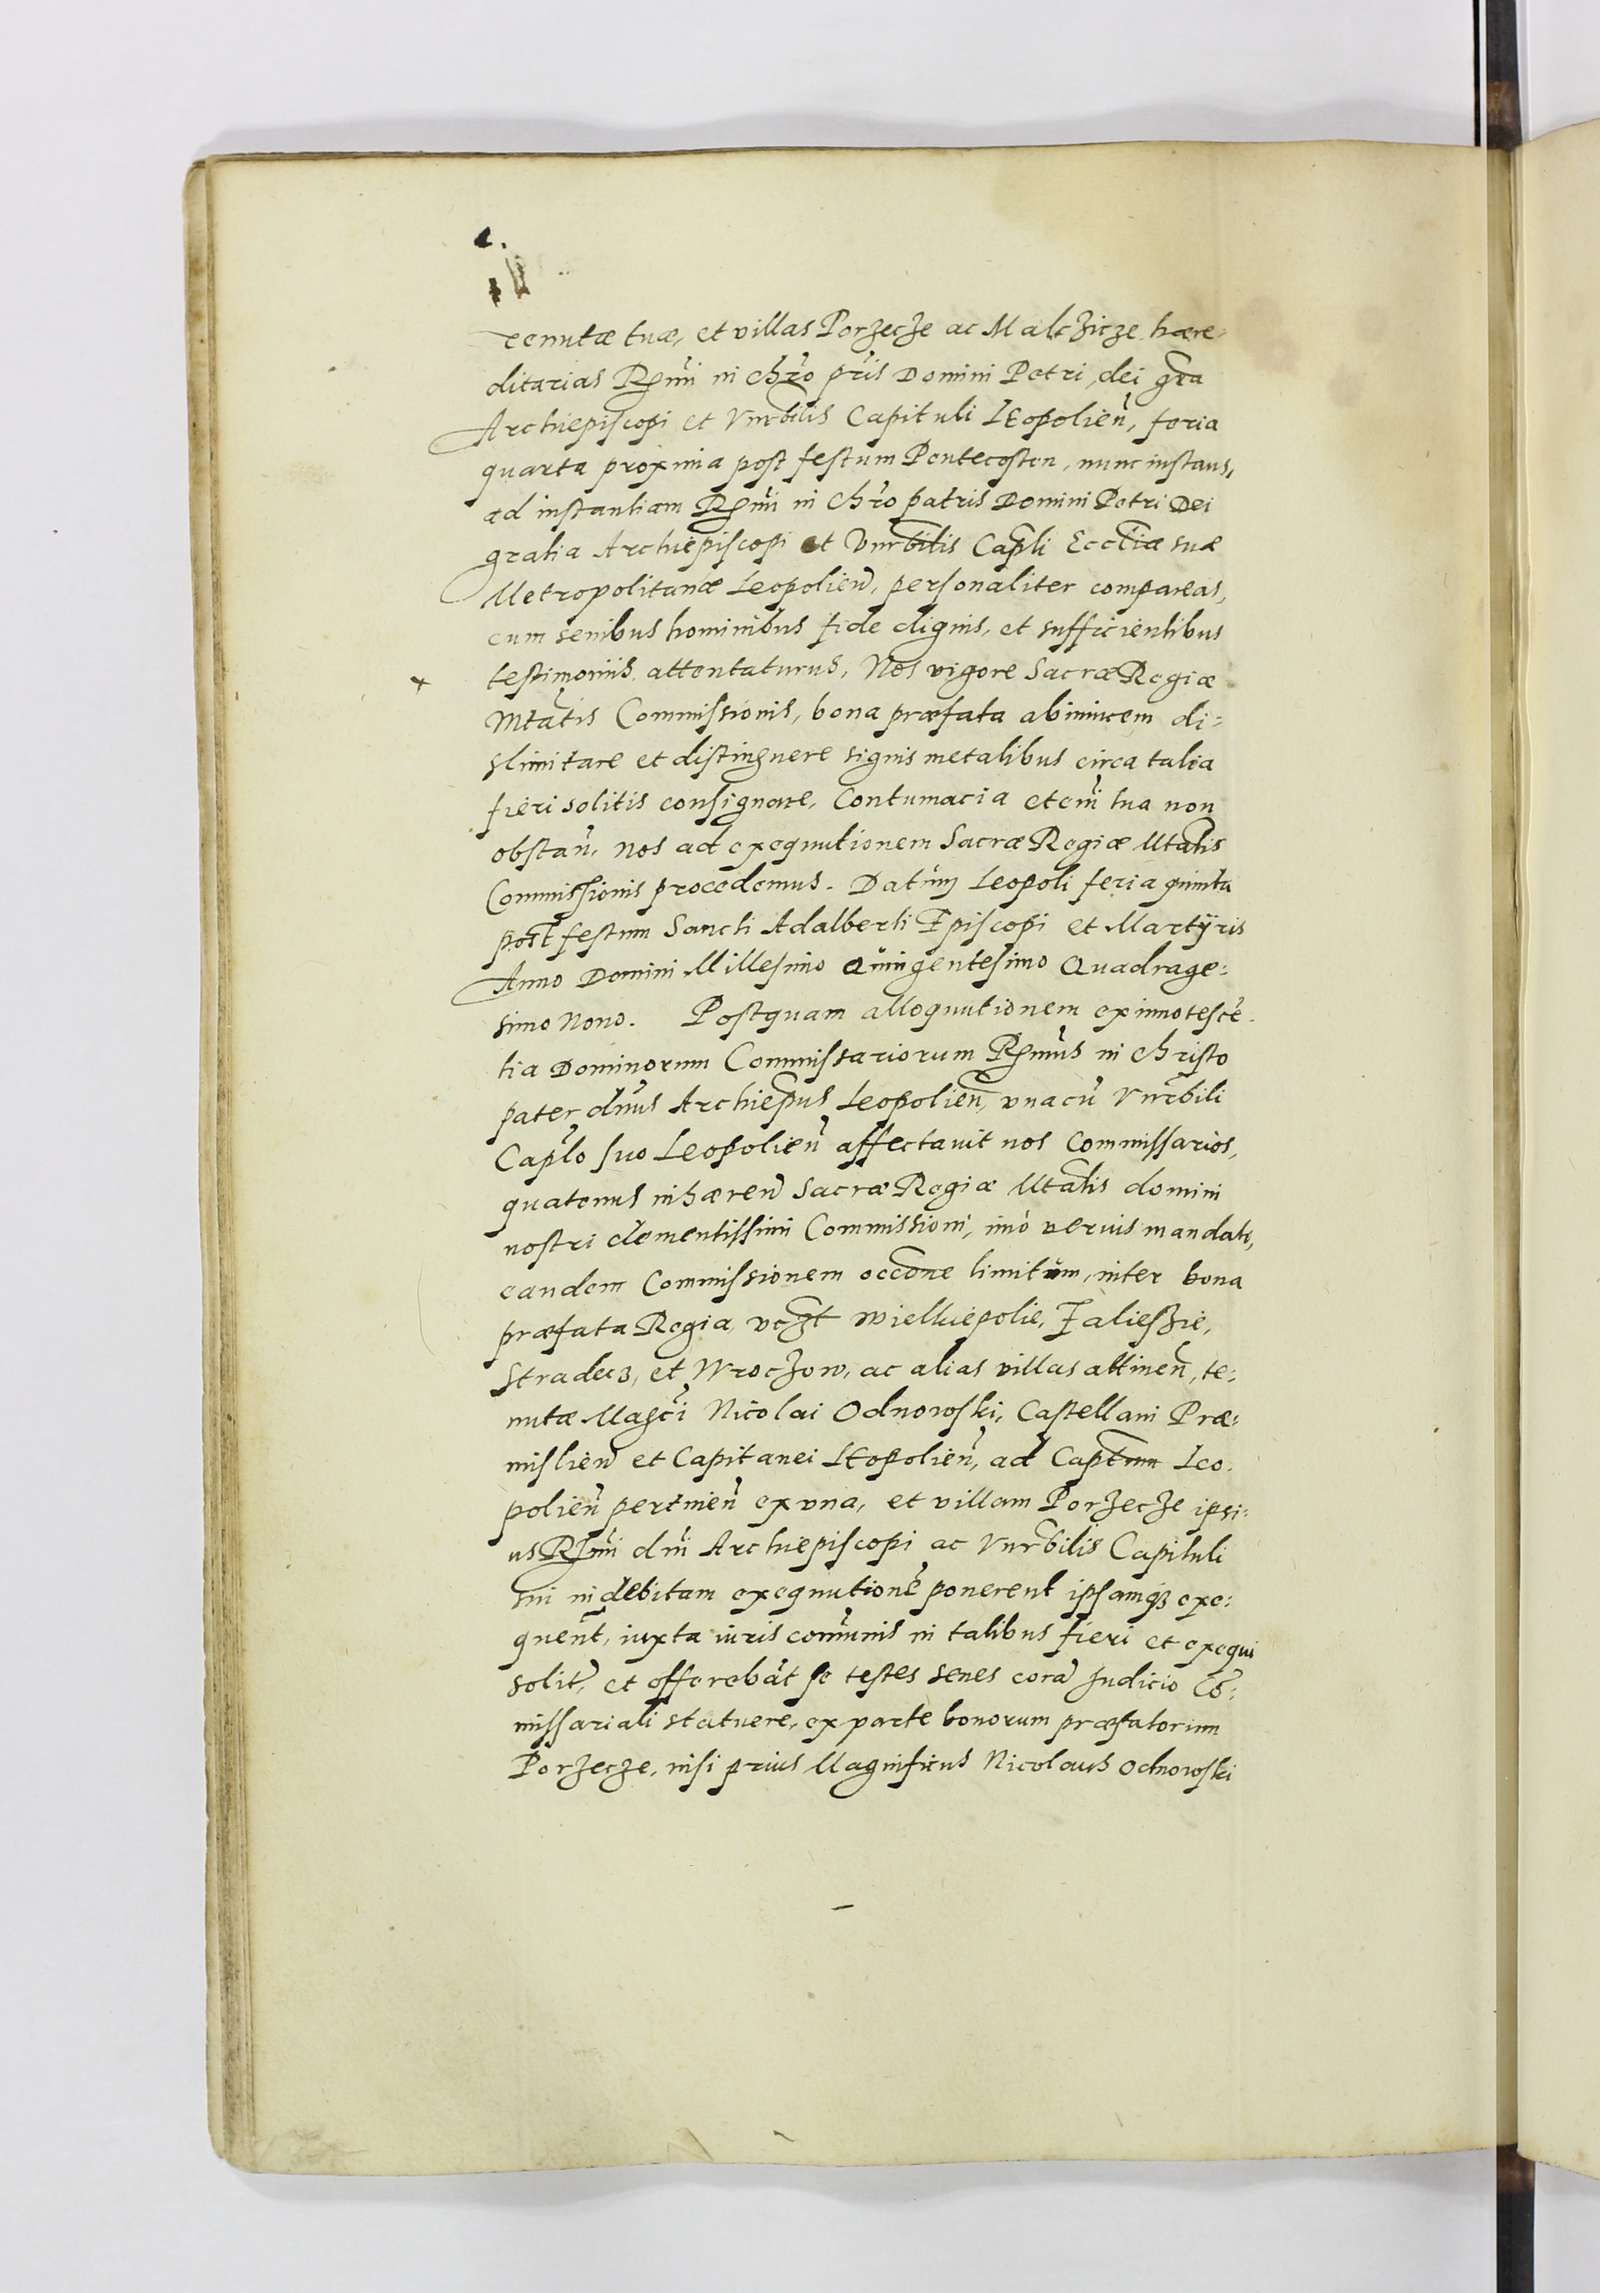 tenutæ tuæ, et villas Porzecze ac Malczicze hære-
ditarias Rṃi in chro pris Domini Petri, dei gra
Archiepiscopi et Vnrbilis Capituli LEopolien, feria
quarta proxima post festum Pentecosten, nunc instans,
ad instantiam Rmi in chro patris Domini Petri Dei
gratia Archiepiscopi et Vnrbilis Capli Eccliæ suæ
Metropolitanæ Leopolien, personaliter compareas,
cum senibus hominibus fide dignis, et sufficientibus
testimoniis attentaturus, Nos vigore Sacræ Regiæ
Mtatis Commissionis, bona præfata abinuicem di-
slimitare et distinguere signis metalibus circa talia
fieri solitis consignare, Contumacia etem tua non
obstan, nos ad exequutionem Sacræ Regiæ Mtatis
Commissionis procedemus. Datum Leopoli feria quinta
post festum Sancti Adalberti Episcopi et Martÿris
Anno Domini Millesimo Quingentesimo Quadrage-
simo Nono. Postquam alloquutionem ex innotescē-
tia Dominorum Commissariorum Rmus in christo
pater dnus Archiepus Leopolien, vnacu Vnrbili
Caplo suo Leopolien affectauit nos Commissarios,
quatenus inhæren Sacræ Regiæ Mtatis domini
nostri clementissimi Commissioni, imo verius mandato,
eandem Commissionem occone limitum, inter bona
præfata Regia, vczt Wielkiepolie, Zalieszie,
Stradecz, et Wroczow, ac alias villas attinen, te-
nutæ Magci Nicolai Odnowski, Castellani Præ-
mislien et Capitanei LEopolien, ad Captum Leo-
polien pertinen ex vna, et villam Porzecze ipsi-
us Rmi dni Archiepiscopi ac Vnrbilis Capituli
sui in debitam exequutionē ponerent ipsamqz exe-
quent, iuxta iuris comunis in talibus fieri et exequi
solit, et offerebāt se testes senes corā Judicio Cō-
missariali statuere, ex parte bonorum præfatorum
Porzecze, nisi prius Magnificus Nicolaus Odnowski